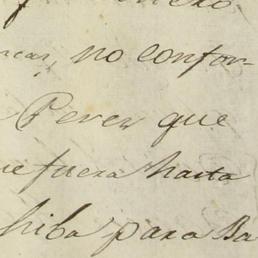 no confor-
Perez que
fuera hasta
hiba para Ba